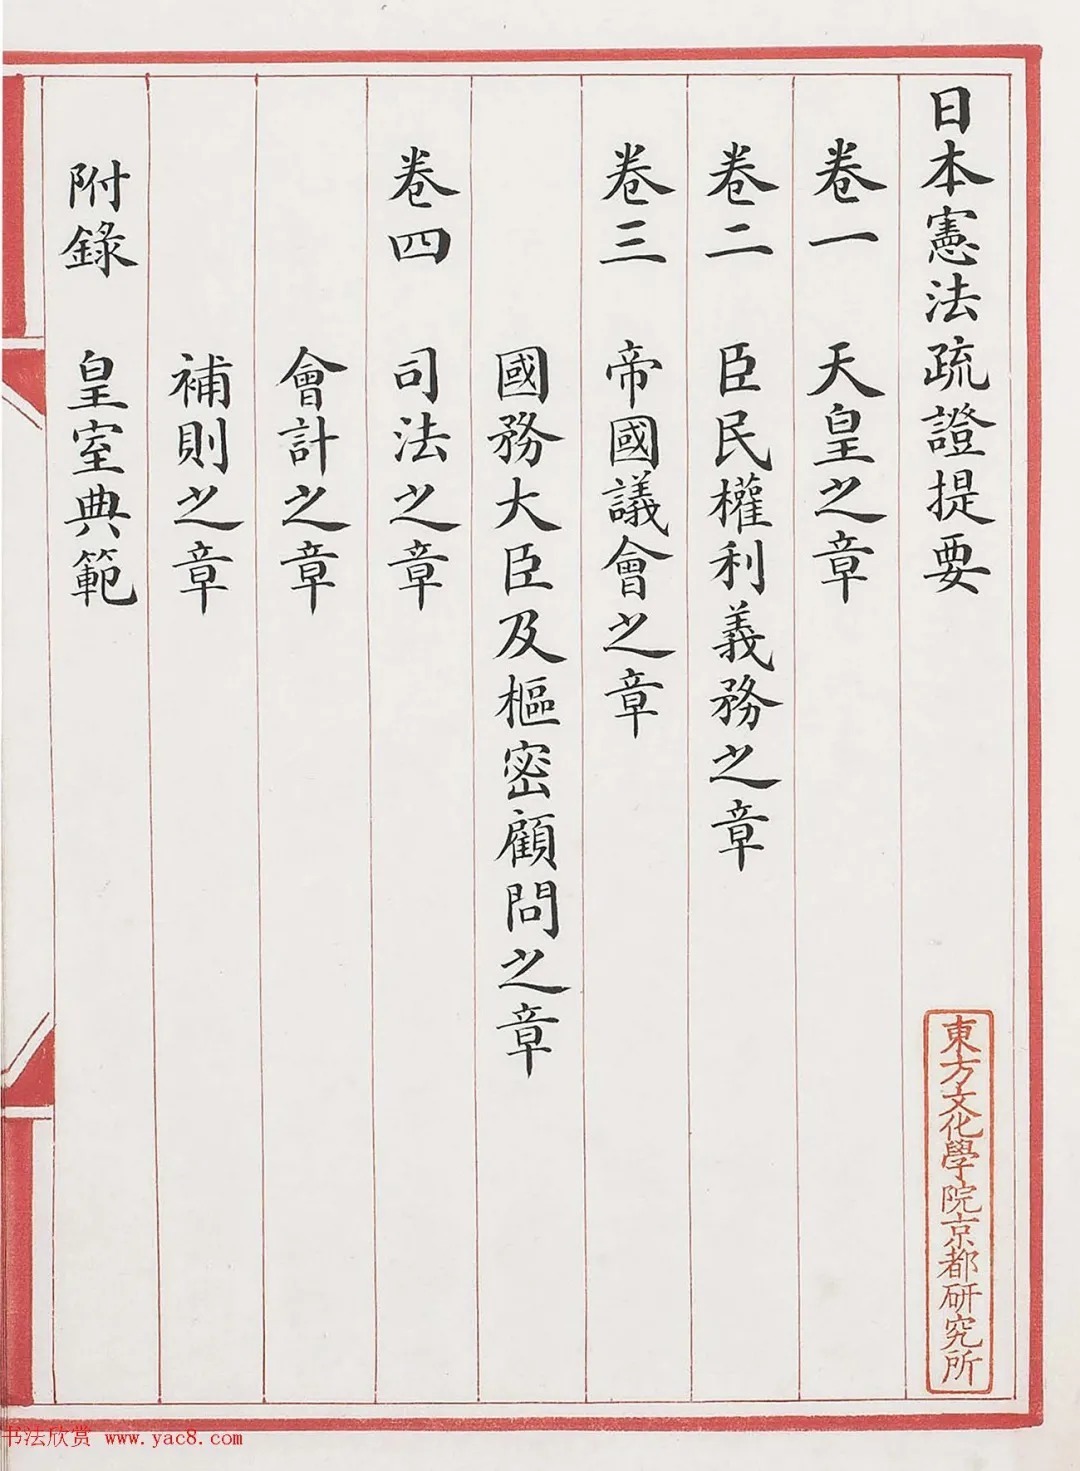 日本憲法疏證提要
卷一 天皇之章
卷二 臣民權利義務之章
卷三 帝國議會之章
國務大臣及樞密顧問之章
卷四 司法之章
會計之章
補則之章
附錄 皇室典範
東方文化學院京都研究所
书法欣赏 www.yac8.com